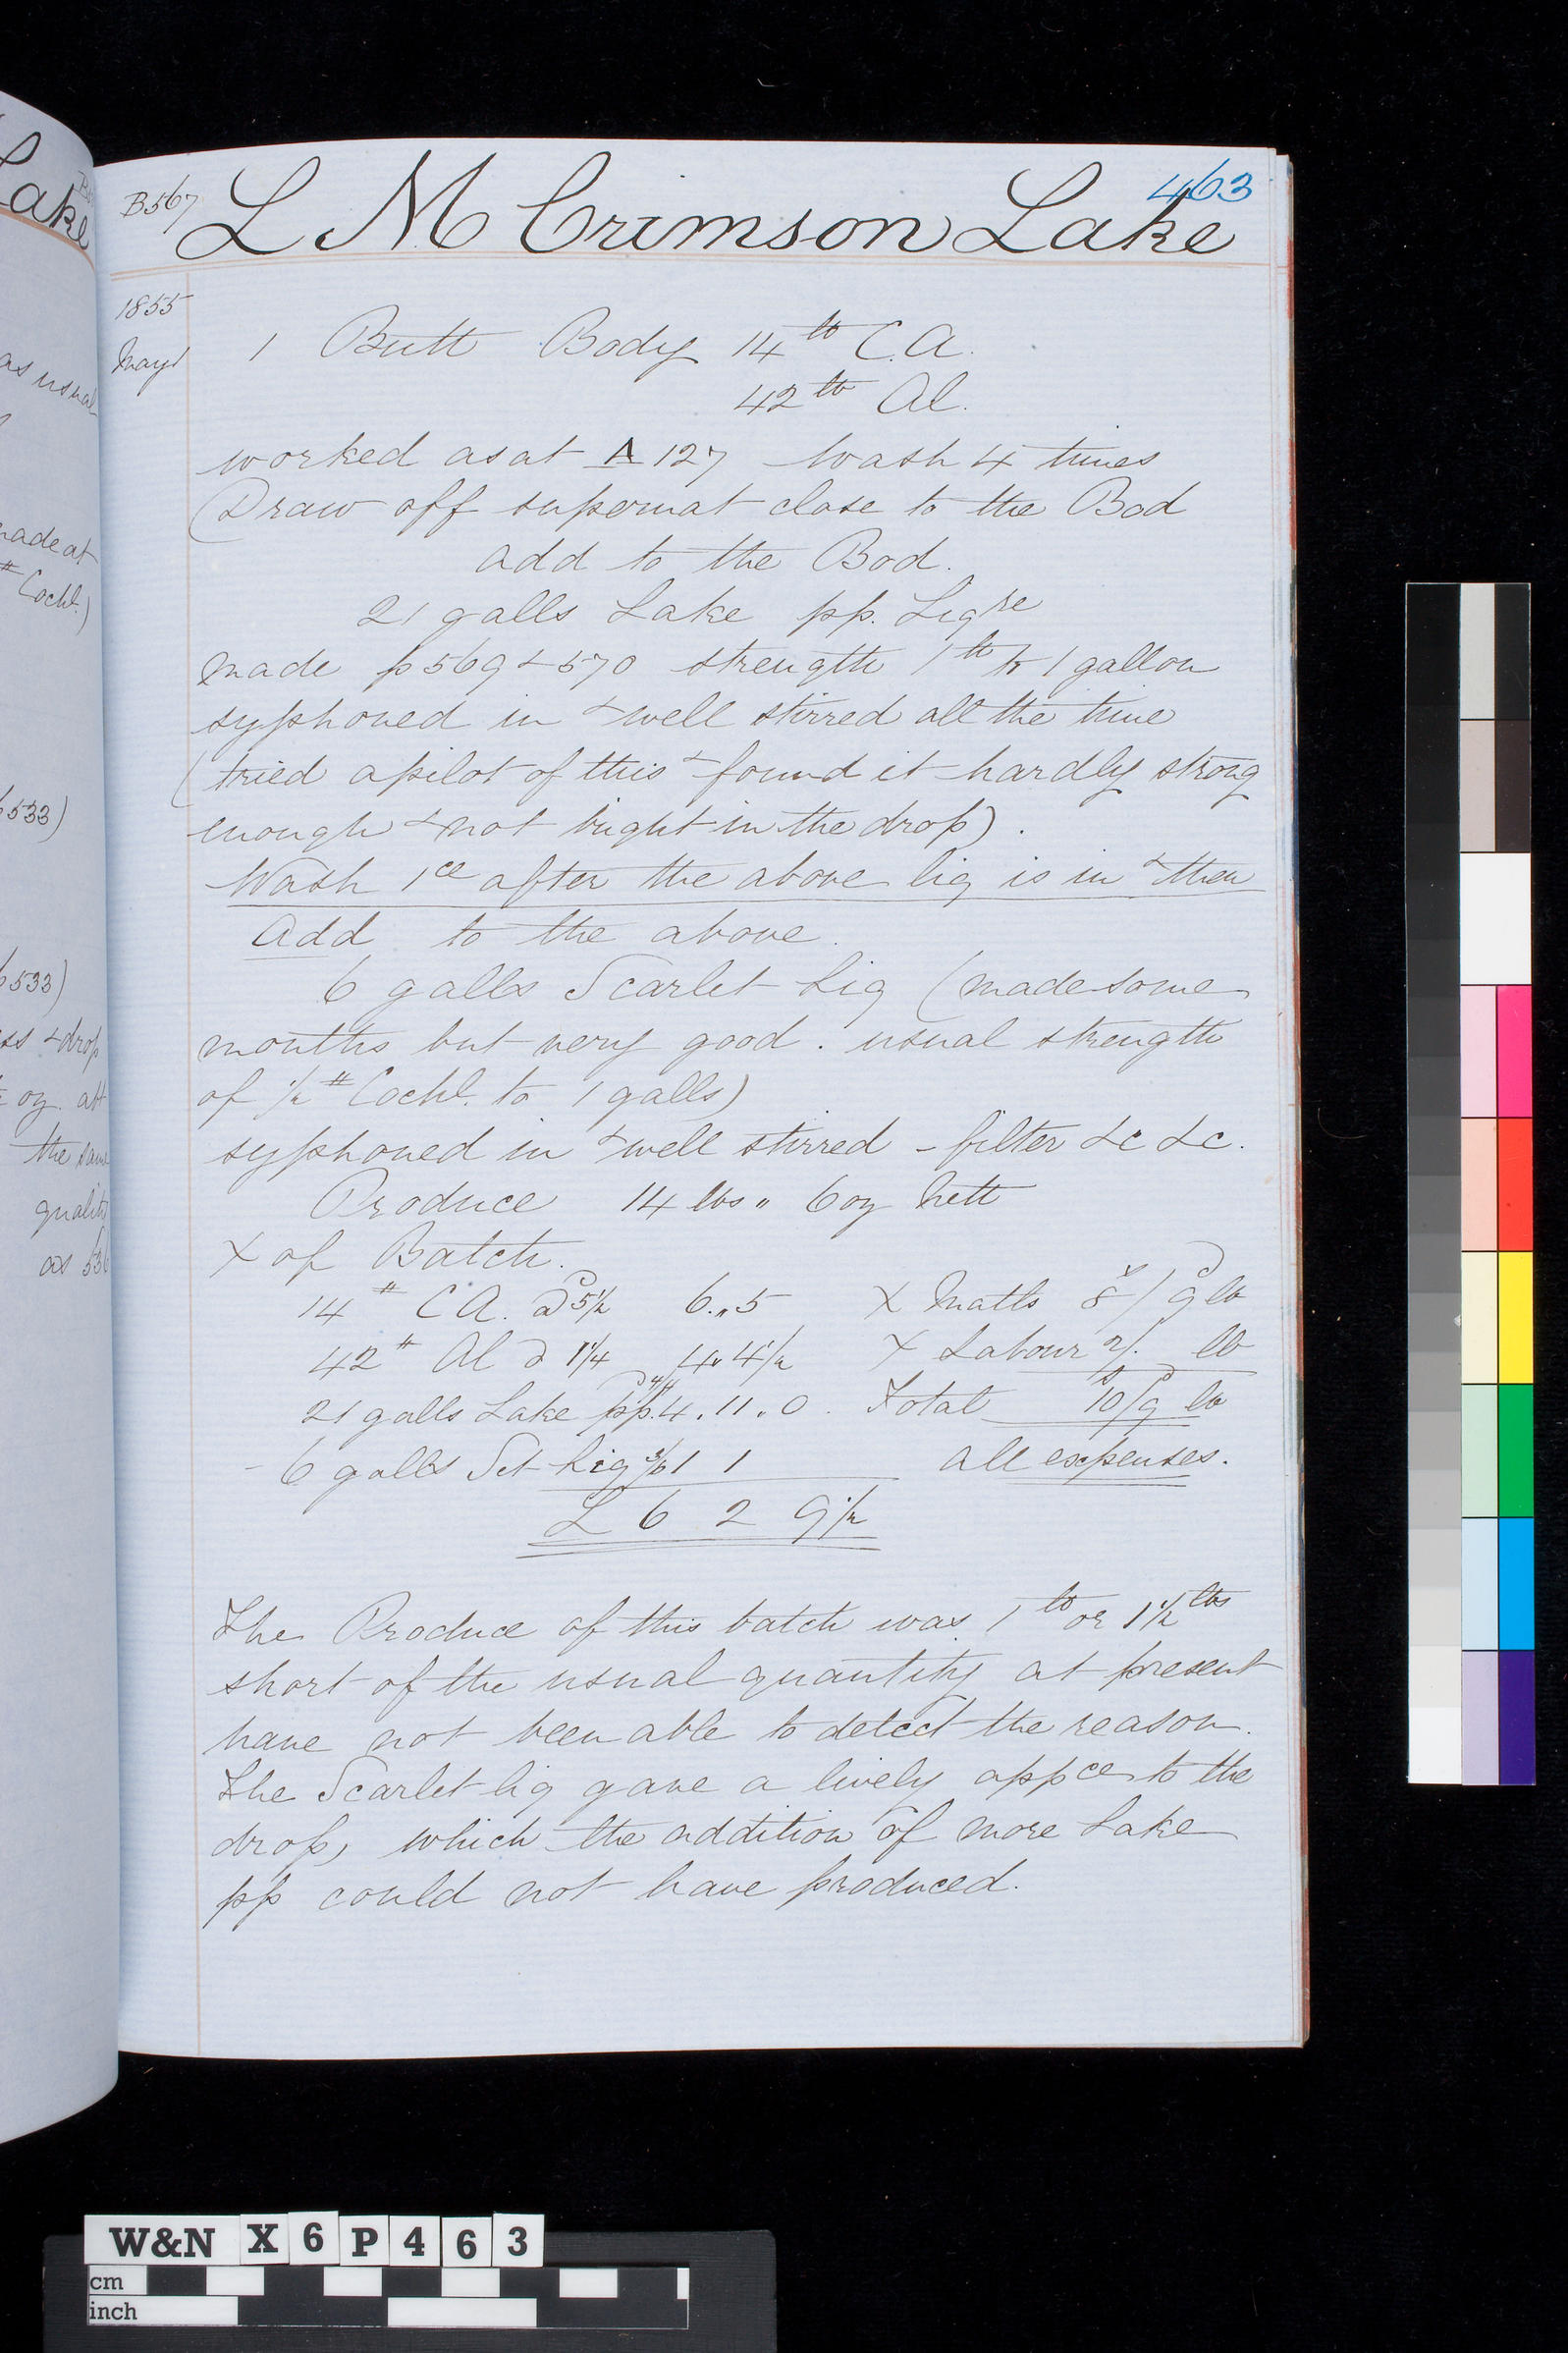 Lake
as usual
made at
# Cochl.)
533)
533)
ss & drop
oz. att
the same
quality
as 536
B567
463
L M Crimson Lake
1855
May 1
1 Butt Body 14 lb C.A.
42 lb Al.
worked as at A 127 Wash 4 times
(Draw off supernat close to the Bod
add to the Bod.
21 galls Lake pp. Liqre
made p 569 & 570 strength 1 lb to 1 gallon
syphoned in & well stirred all the time
(tried a pilot of this & found it hardly strong
enough & not bright in the drop).
Wash 1ce after the above liq is in & then
Add to the above.
6 galls Scarlet Liq (made some
months but very good. usual strength
of 1/2 # Cochl. to 1 galls)
syphoned in & well stirred - filter &c &c.
Produce 14 lbs " 6 oz Nett
X of Batch.
14 # C A. @ 5 1/2 6 " 5 X Matls 8s/9d lb
42 # Al @ 1 1/4 4 " 4 1/2 X Labour 2/. lb
21 galls Lake pp. 4/4 4 . 11 . 0 . Total 10s/9d lb
6 galls Sct Liq 3/6 1 1 all expenses.
£ 6 2 9 1/2
The Produce of this batch was 1 lb or 1 1/2 lbs
short of the usual quantity at present
have not been able to detect the reason.
The Scarlet liq gave a lively appce to the
drop, which the addition of more Lake
pp could not have produced.
W&N X 6 P 4 6 3
cm
inch